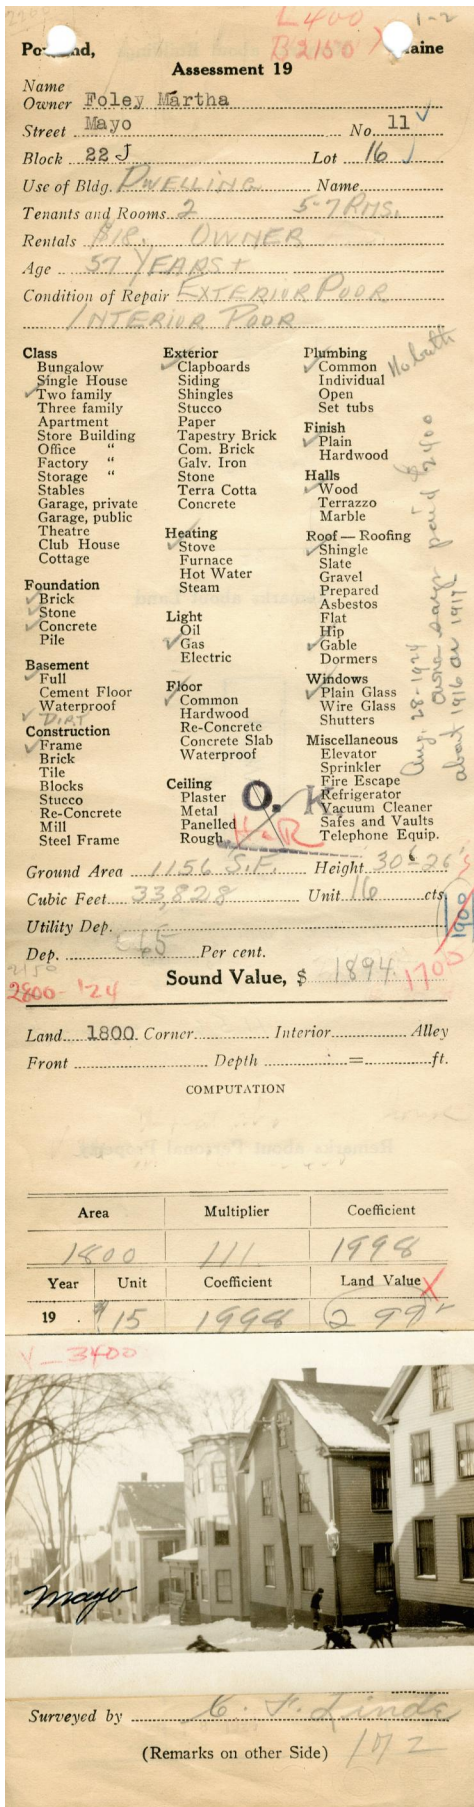 L 400
1-2
B 2150 X
Portland, Maine
Assessment 19
Name
Owner Foley Martha
Street Mayo No. 11
Block 22 J Lot 16
Use of Bldg. DWELLING Name
Tenants and Rooms 2 5-7 RMS.
Rentals $18. OWNER
Age 57 YEARS +
Condition of Repair EXTERIOR POOR
INTERIOR POOR
Class
Bungalow
Single House
Two family
Three family
Apartment
Store Building
Office "
Factory "
Storage "
Stables
Garage, private
Garage, public
Theatre
Club House
Cottage
Foundation
Brick
Stone
Concrete
Pile
Basement
Full
Cement Floor
Waterproof
DIRT
Construction
Frame
Brick
Tile
Blocks
Stucco
Re-Concrete
Mill
Steel Frame
Exterior
Clapboards
Siding
Shingles
Stucco
Paper
Tapestry Brick
Com. Brick
Galv. Iron
Stone
Terra Cotta
Concrete
Heating
Stove
Furnace
Hot Water
Steam
Light
Oil
Gas
Electric
Floor
Common
Hardwood
Re-Concrete
Concrete Slab
Waterproof
Ceiling
Plaster
Metal
Panelled
Rough
Plumbing
Common
Individual
Open
Set tubs
No bath
Finish
Plain
Hardwood
Halls
Wood
Terrazzo
Marble
Roof — Roofing
Shingle
Slate
Gravel
Prepared
Asbestos
Flat
Hip
Gable
Dormers
Windows
Plain Glass
Wire Glass
Shutters
Miscellaneous
Elevator
Sprinkler
Fire Escape
Refrigerator
Vacuum Cleaner
Safes and Vaults
Telephone Equip.
Aug. 28-1924
owner says paid $2400
about 1916 or 1917
O. K.
H.R
Ground Area 1156 S.F. Height 30'-26'
Cubic Feet 33,828 Unit 16 cts.
Utility Dep.
1900
Dep. 65 Per cent.
2150
2800-'24
Sound Value, $ 1894.
1700
Land 1800 Corner Interior Alley
Front Depth = ft.
COMPUTATION
Area Multiplier Coefficient
1800 111 1998
Year Unit Coefficient Land Value X
19 $15 1998 299
V-3400
Mayo
Surveyed by C. F. Linde
(Remarks on other Side) 172